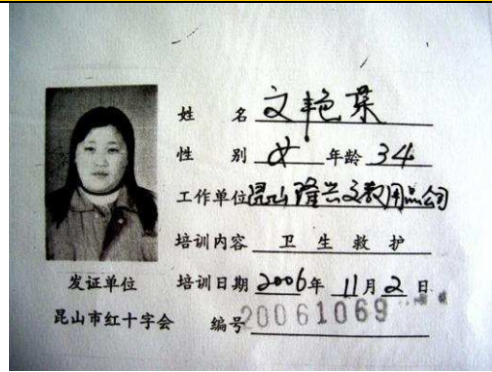 姓 名 文艳菜
性 别 女 年龄 34
工作单位 昆山隆兴文教用品公司
培训内容 卫生救护
发证单位 培训日期 2006年 11月 2 日
昆山市红十字会 编号 20061069